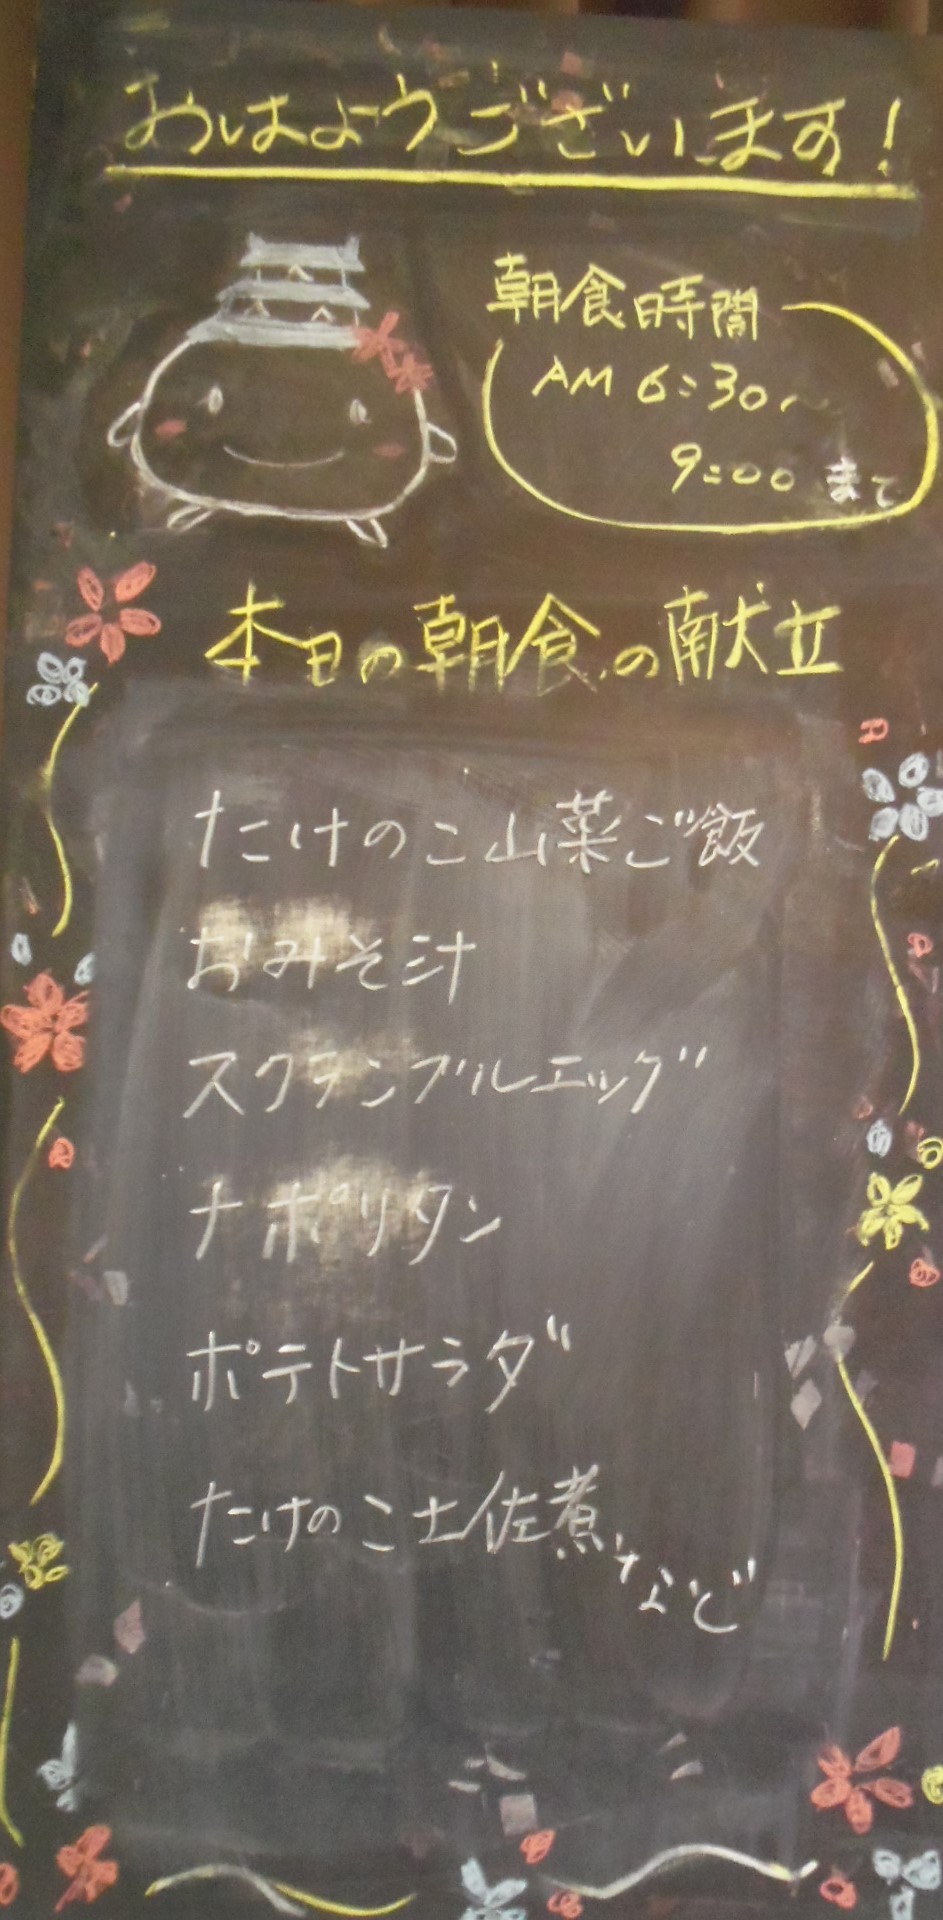 おはようございます!
朝食時間
AM 6:30〜
9:00 まで
本日の朝食の献立
たけのこ山菜ご飯
おみそ汁
スクランブルエッグ
ナポリタン
ポテトサラダ
たけのこ土佐煮
など